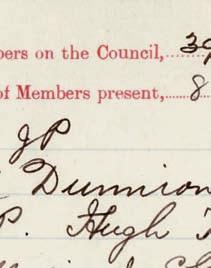 bers on the Council, 39
of Members present, 8
JP
Dunnion
P. Hugh